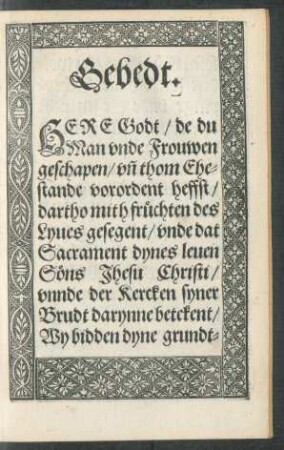 Gebedt.
HERE Godt / de du
Man vnde Frouwen
geschapen / vñ thom Ehe-
stande vorordent heffst /
dartho mith früchten des
Lyues gesegent / vnde dat
Sacrament dynes leuen
Söns Jhesu Christi /
vnnde der Kercken syner
Brudt darynne betekent /
Wy bidden dyne grundt-